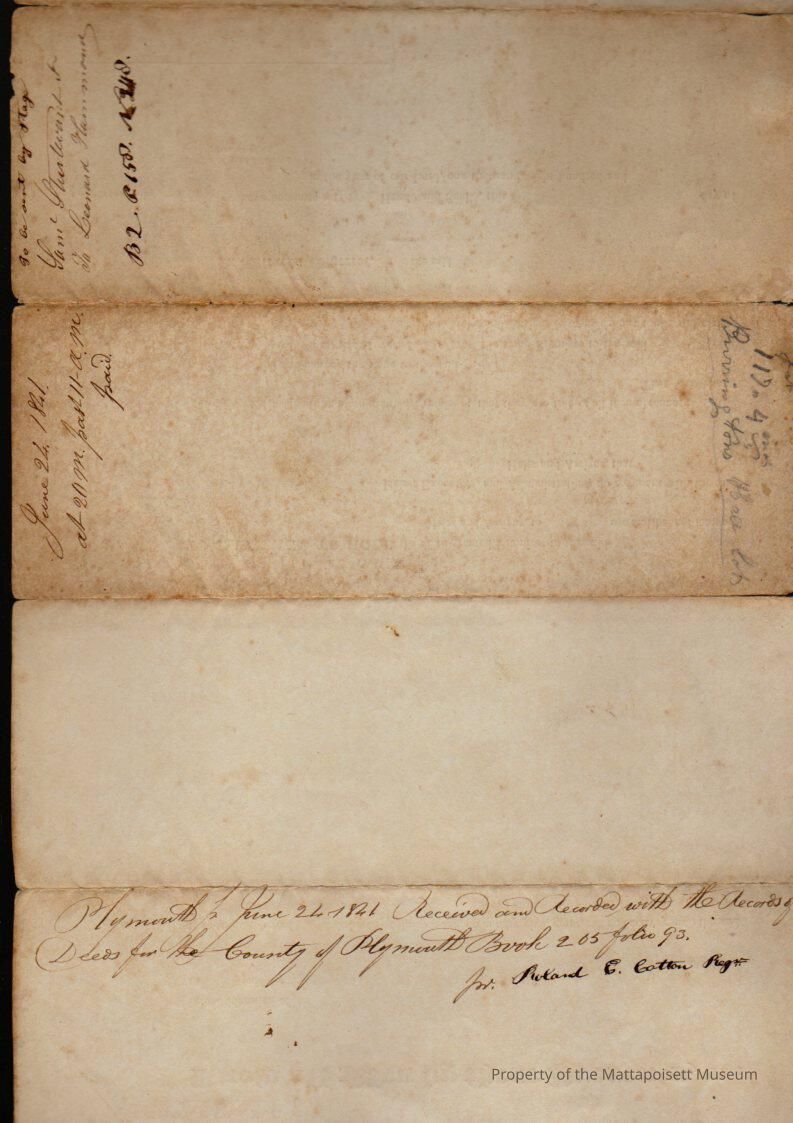 To be sent by Stag
Saml Sturtevant Jr
To Leonard Hammond
B 2. P 158. N 248.
June 24. 1841.
at 20 m. past 11-A.M.
paid.
Plymouth ss June 24-1841 Received and Recorded with the Records of
Deeds for the County of Plymouth Book 205 folio 93.
pr. Roland E. Cotton Regr
Property of the Mattapoisett Museum